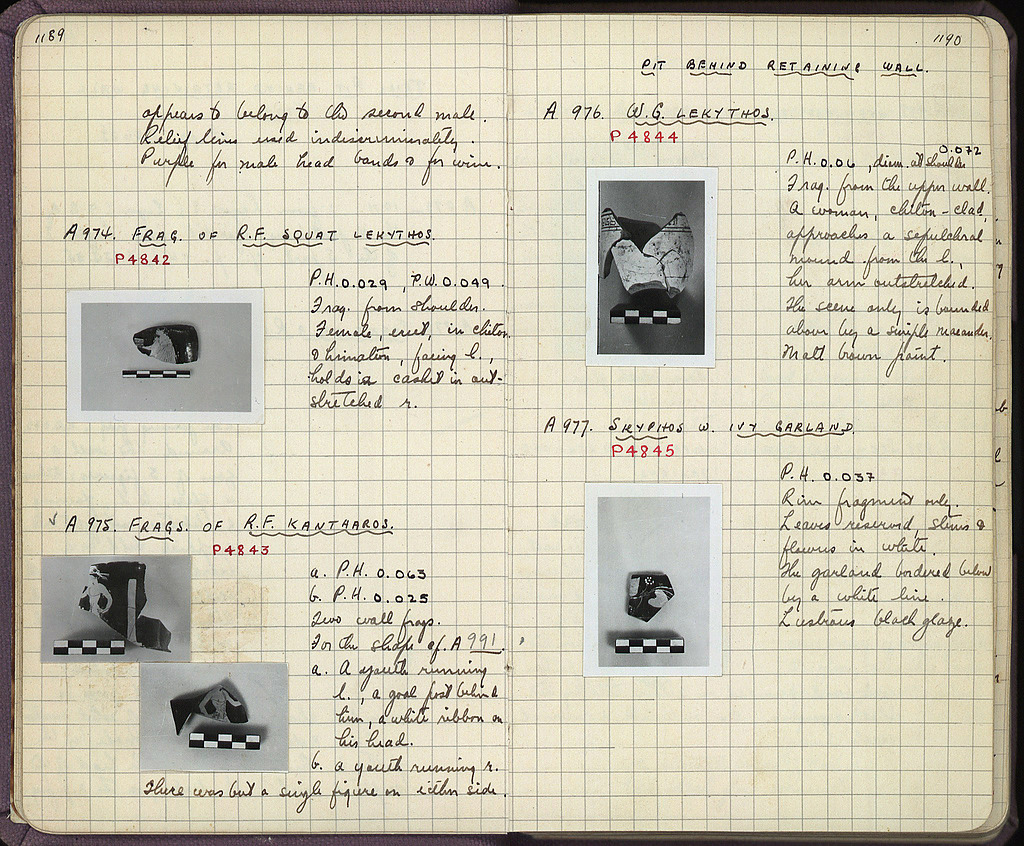 1189
appears to belong to the second male.
Relief lines used indiscriminately.
Purple for male head bands & for wine.
A 974. FRAG. OF R.F. SQUAT LEKYTHOS.
P4842
P.H. 0.029, P.W. 0.049.
Frag. from shoulder.
Female, erect, in chiton
& himation, facing l.,
holds a casket in out-
stretched r.
A 975. FRAGS. OF R.F. KANTHAROS.
P4843
a. P.H. 0.063
b. P.H. 0.025
Two wall frags.
For the shape cf. A 991.
a. A youth running
l., a goal post behind
him, a white ribbon on
his head.
b. a youth running r.
There was but a single figure on either side.
1190
PIT BEHIND RETAINING WALL.
A 976. W.G. LEKYTHOS.
P4844
P.H. 0.06, diam. at shoulder 0.072
Frag. from the upper wall.
A woman, chiton-clad,
approaches a sepulchral
mound from the l.,
her arm outstretched.
The scene only is bounded
above by a simple maeander.
Matt brown paint.
A 977. SKYPHOS W. IVY GARLAND.
P4845
P.H. 0.037
Rim fragment only.
Leaves reserved, stems &
flowers in white.
The garland bordered below
by a white line.
Lustrous black glaze.